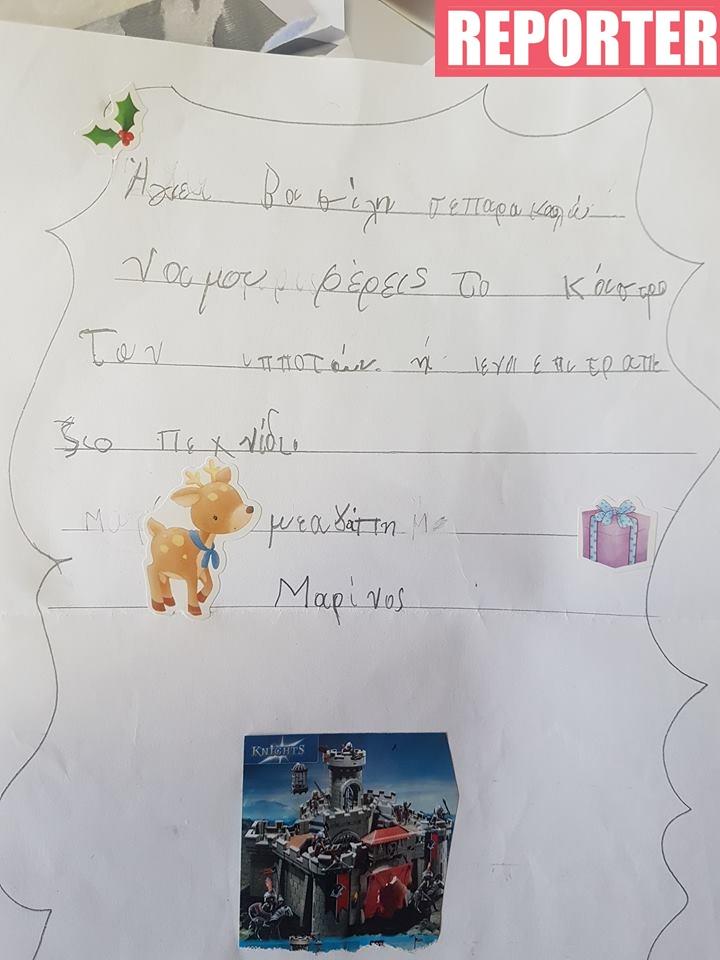 REPORTER
Άγιε Βασίλη σεπαρακαλώ
Ναμου φέρεις το κάστρο
Των ιπποτών. ή ιενα επιτραπε
ζιο πεχνίδι
μεαγάπη
Μαρίνος
KNIGHTS